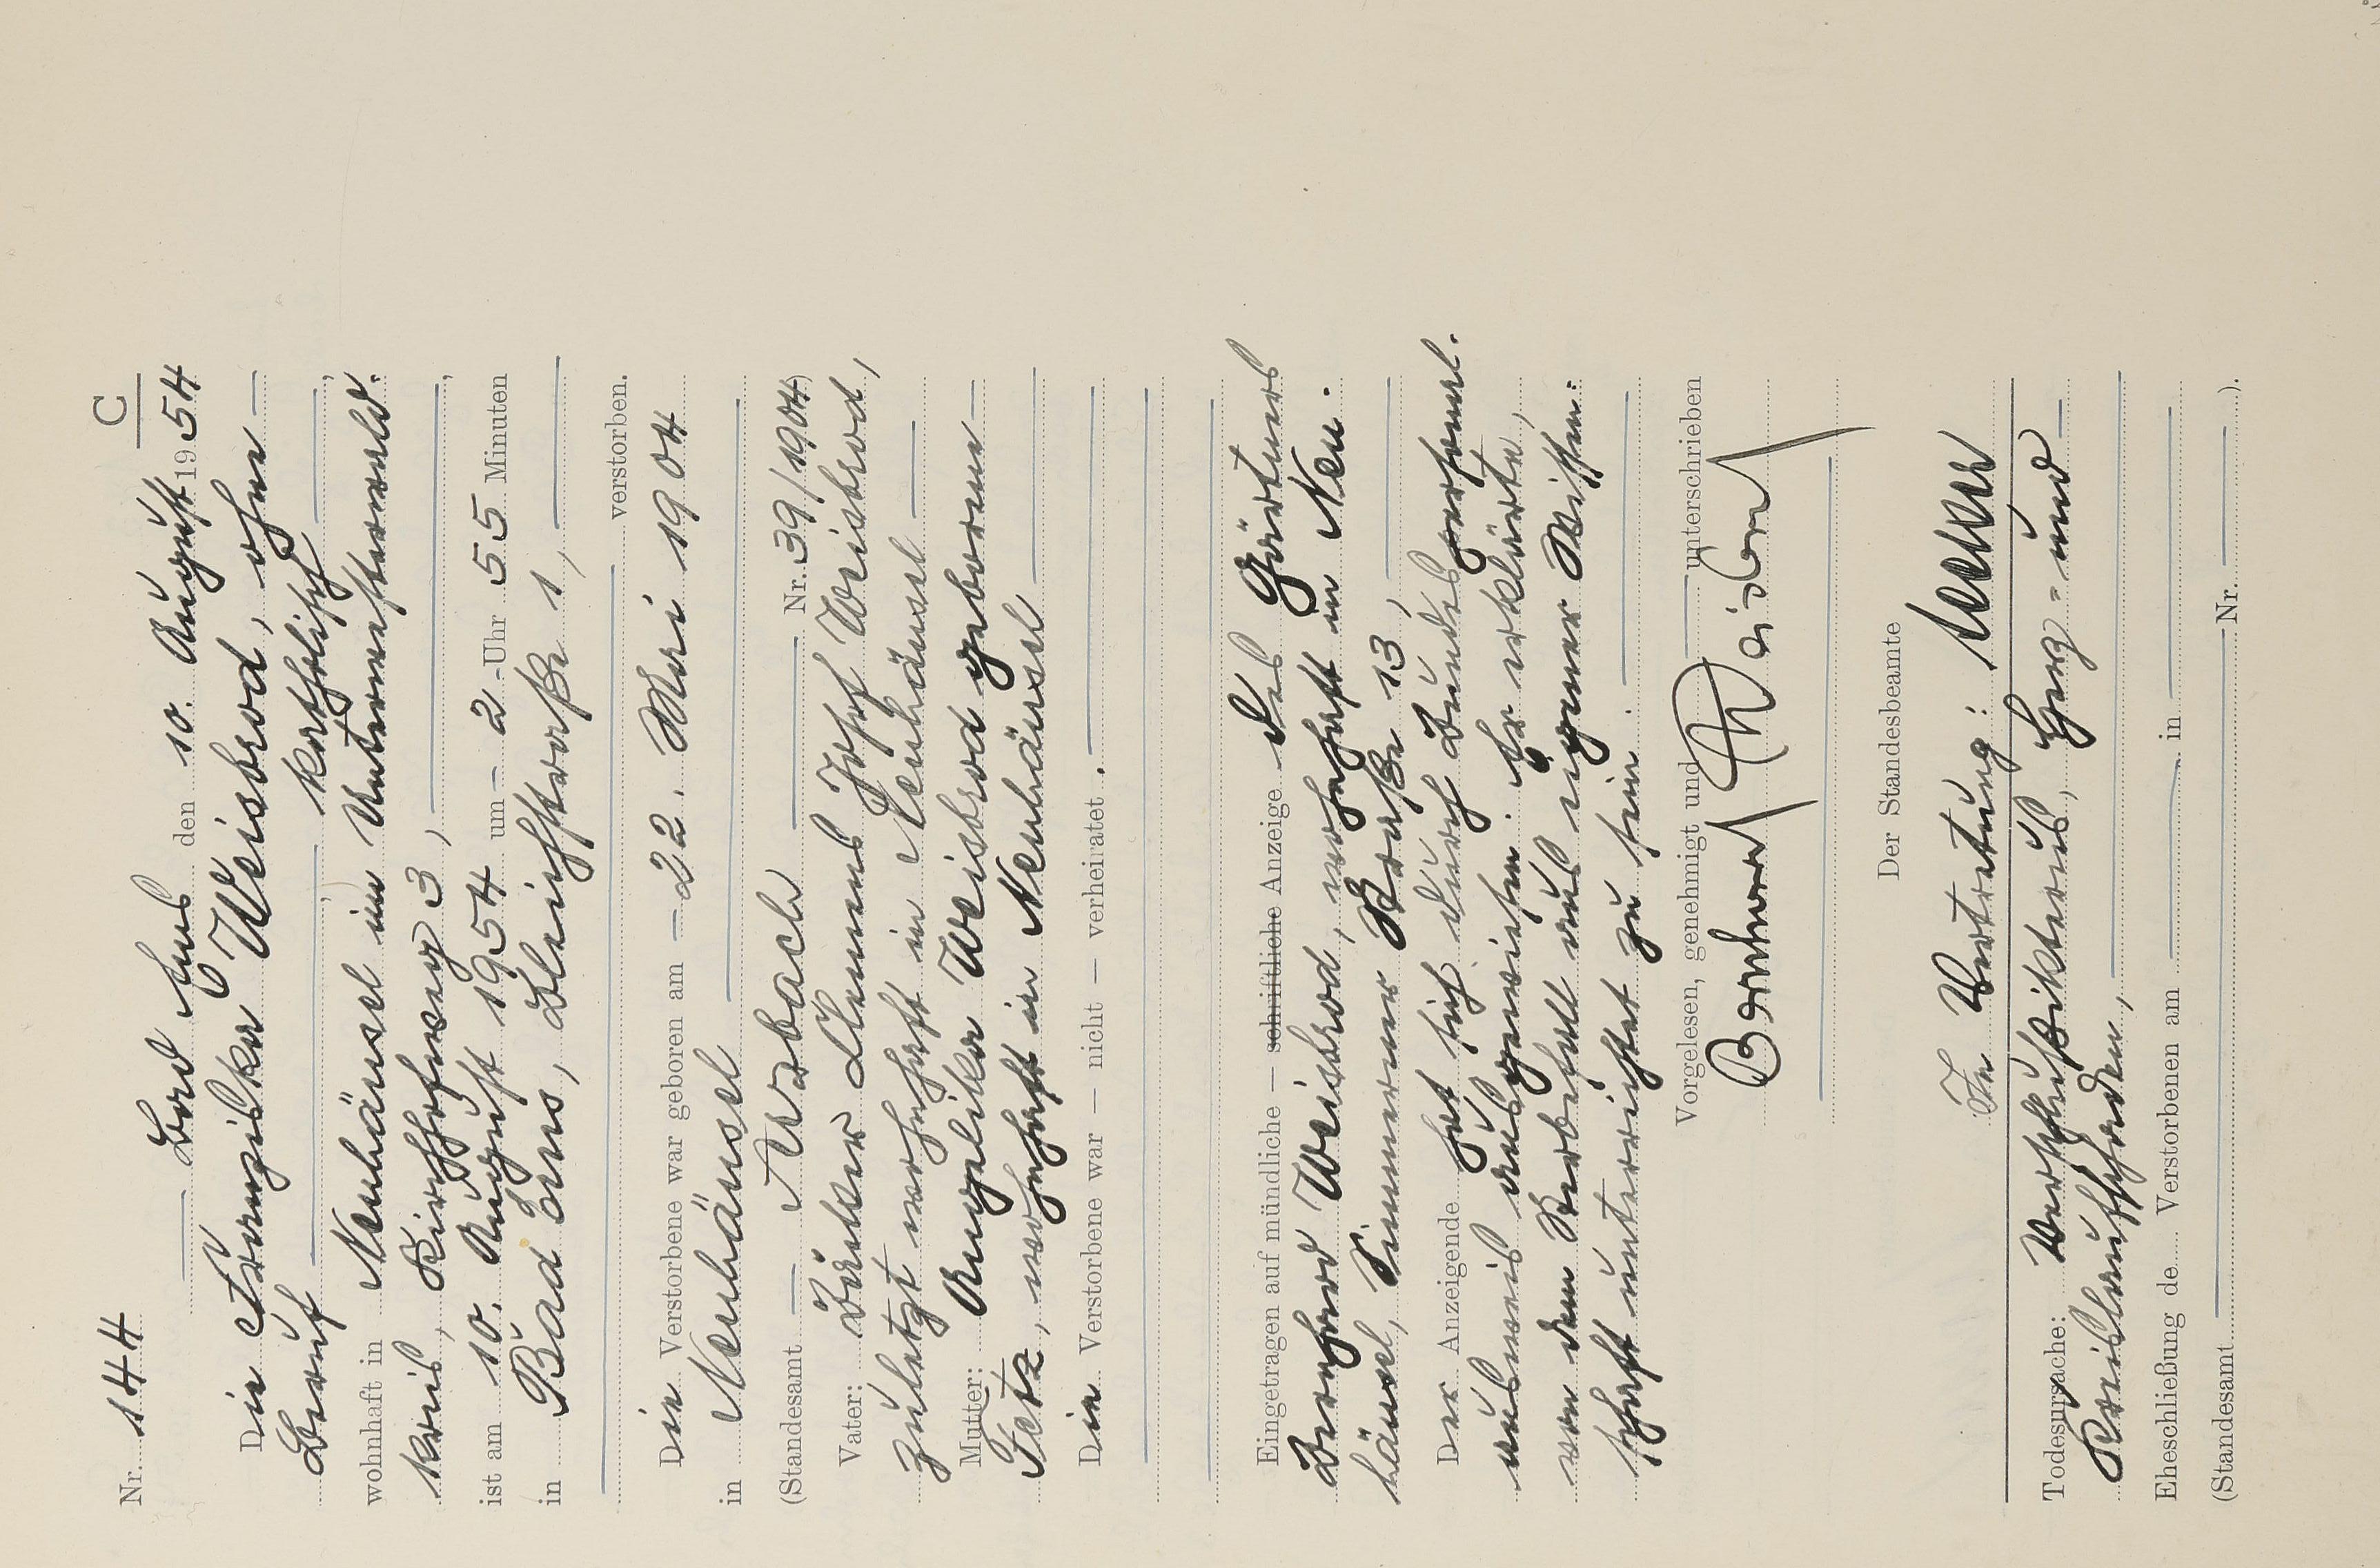 C
Nr. 144
Bad Ems den 10. August 1954
Die Franziska Weisbrod, ohne
Beruf katholisch,
wohnhaft in Neuhäusel im Unterwesterwald-
kreis, Kirchhofsweg 3,
ist am 10. August 1954 um 2 Uhr 55 Minuten
in Bad Ems, Bleichstraße 1,
verstorben.
Die Verstorbene war geboren am 22. Mai 1904
in Neuhäusel
(Standesamt Arzbach Nr. 39/1904)
Vater: Bäcker Klemens Josef Weisbrod,
zuletzt wohnhaft in Neuhäusel
Mutter: Angelika Weisbrod geborene
Fetz, wohnhaft in Neuhäusel
Die Verstorbene war — nicht — verheiratet.
Eingetragen auf mündliche — schriftliche Anzeige des Gärtners
Bernhard Weisbrod, wohnhaft in Neu-
häusel, Simmerner Straße 13,
Der Anzeigende hat sich durch Bundespersonal-
ausweis ausgewiesen. Er erklärte,
von dem Sterbefall aus eigener Wissen-
schaft unterrichtet zu sein.
Vorgelesen, genehmigt und unterschrieben
Bernhard Weisbrod
Der Standesbeamte
In Vertretung:
Todesursache: Verschlußikterus, Herz- und
Kreislaufschaden,
Eheschließung de Verstorbenen am in
(Standesamt Nr. ).